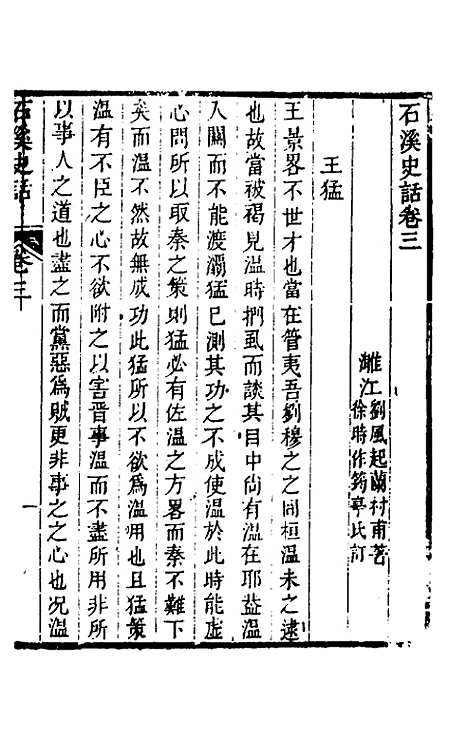 石溪史話卷三
濰江劉風起蘭村甫著
徐時作筠亭氏訂
王猛
王景畧不世才也當在管夷吾劉穆之之間桓温未之逮
也故當被褐見温時捫虱而談其目中尙有温在耶葢温
入關而不能渡灞猛已測其功之不成使温於此時能虛
心問所以取秦之策則猛必有佐温之方畧而秦不難下
矣而温不然故無成功此猛所以不欲爲温用也且猛策
温有不臣之心不欲附之以害晉事温而不盡所用非所
以事人之道也盡之而黨惡爲賊更非事之之心也况温
石溪史話
卷三
一